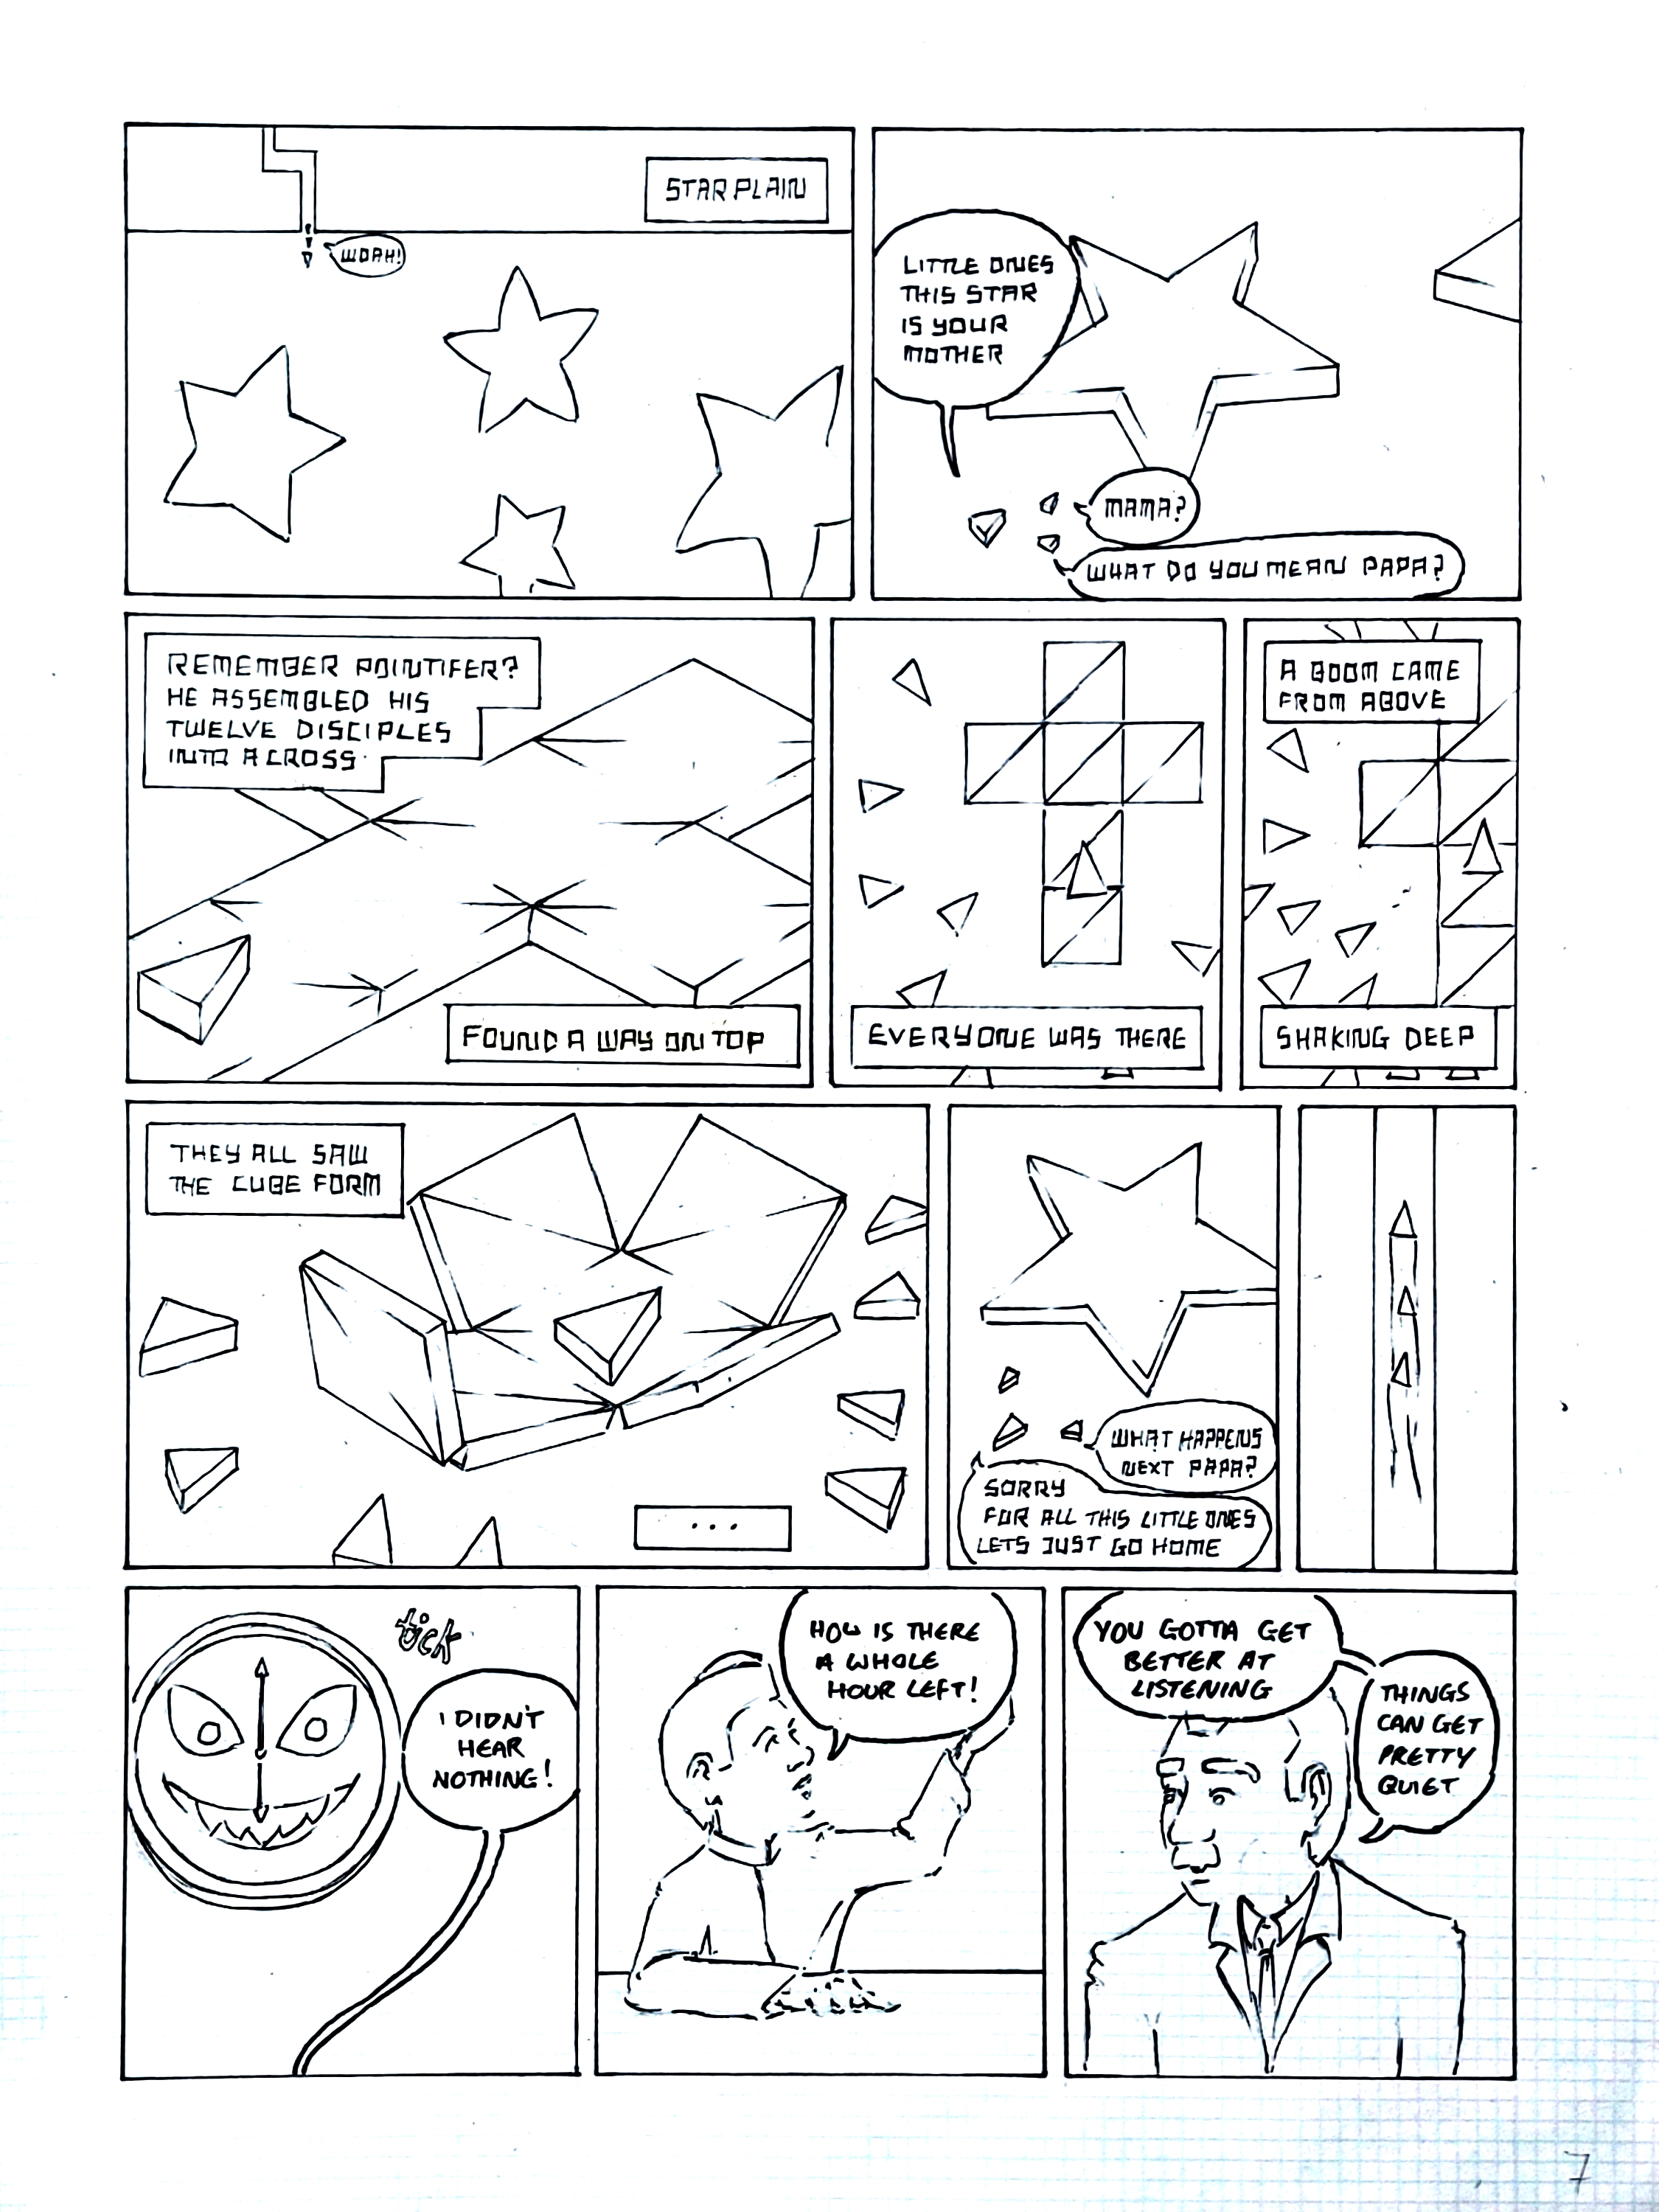 STARPLAIN
WOAH!
LITTLE ONES
THIS STAR
IS YOUR
MOTHER
MAMA?
WHAT DO YOU MEAN PAPA?
REMEMBER POINTIFER?
HE ASSEMBLED HIS
TWELVE DISCIPLES
INTO A CROSS
FOUND A WAY ON TOP
EVERYONE WAS THERE
A BOOM CAME
FROM ABOVE
SHAKING DEEP
THEY ALL SAW
THE CUBE FORM
...
WHAT HAPPENS
NEXT PAPA?
SORRY
FOR ALL THIS LITTLE ONES
LETS JUST GO HOME
tick
I DIDN'T
HEAR
NOTHING!
HOW IS THERE
A WHOLE
HOUR LEFT!
YOU GOTTA GET
BETTER AT
LISTENING
THINGS
CAN GET
PRETTY
QUIET
7